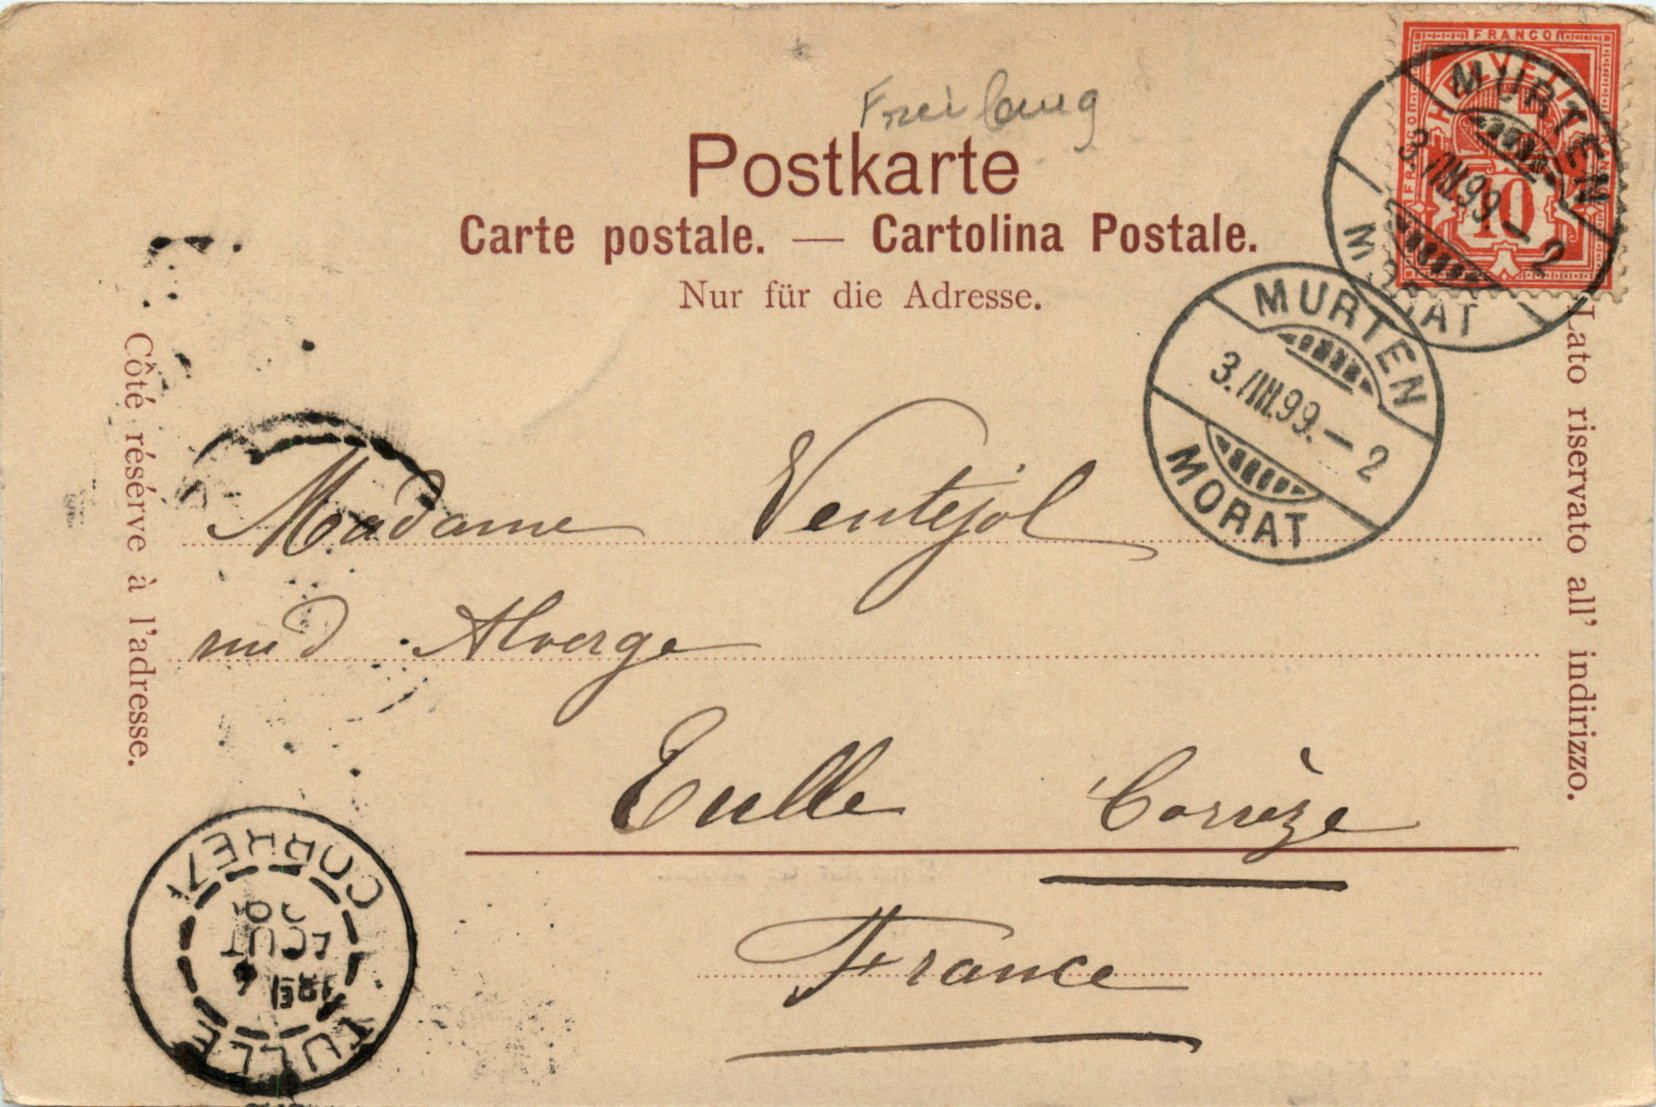 Freiburg
Postkarte
Carte postale. — Cartolina Postale.
Nur für die Adresse.
Côté réservé à l'adresse.
Lato riservato all' indirizzo.
FRANCO
HELVETIA
10
MURTEN
3.VIII.99.–2
MORAT
MURTEN
3.VIII.99.–2
MORAT
Madame Ventejol
rue d'Alverge
Tulle Corrèze
France
TULLE
AOUT
CORREZE